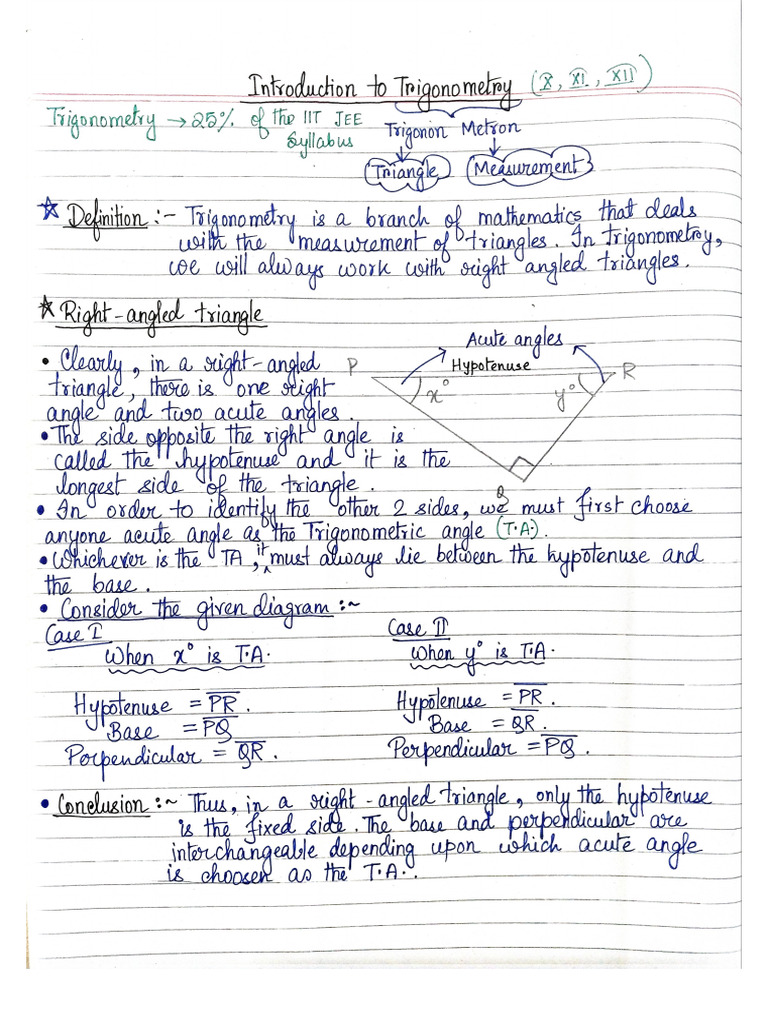 Introduction to Trigonometry (X, XI, XII)
Trigonometry → 25% of the IIT JEE
Syllabus
Trigonon Metron
Triangle
Measurement
☆ Definition :- Trigonometry is a branch of mathematics that deals
with the measurement of triangles. In trigonometry,
we will always work with right angled triangles.
☆ Right-angled triangle
Acute angles
Hypotenuse
P
R
x°
y°
Q
• Clearly, in a right-angled
triangle, there is one right
angle and two acute angles.
• The side opposite the right angle is
called the hypotenuse and it is the
longest side of the triangle.
• In order to identify the other 2 sides, we must first choose
anyone acute angle as the Trigonometric angle (T.A.).
• Whichever is the TA, it must always lie between the hypotenuse and
the base.
• Consider the given diagram :~
Case I
When x° is T.A.
Hypotenuse = P̅R̅.
Base = P̅Q̅
Perpendicular = Q̅R̅.
Case II
When y° is T.A.
Hypotenuse = P̅R̅.
Base = Q̅R̅.
Perpendicular = P̅Q̅.
• Conclusion :~ Thus, in a right-angled triangle, only the hypotenuse
is the fixed side. The base and perpendicular are
interchangeable depending upon which acute angle
is choosen as the T.A.